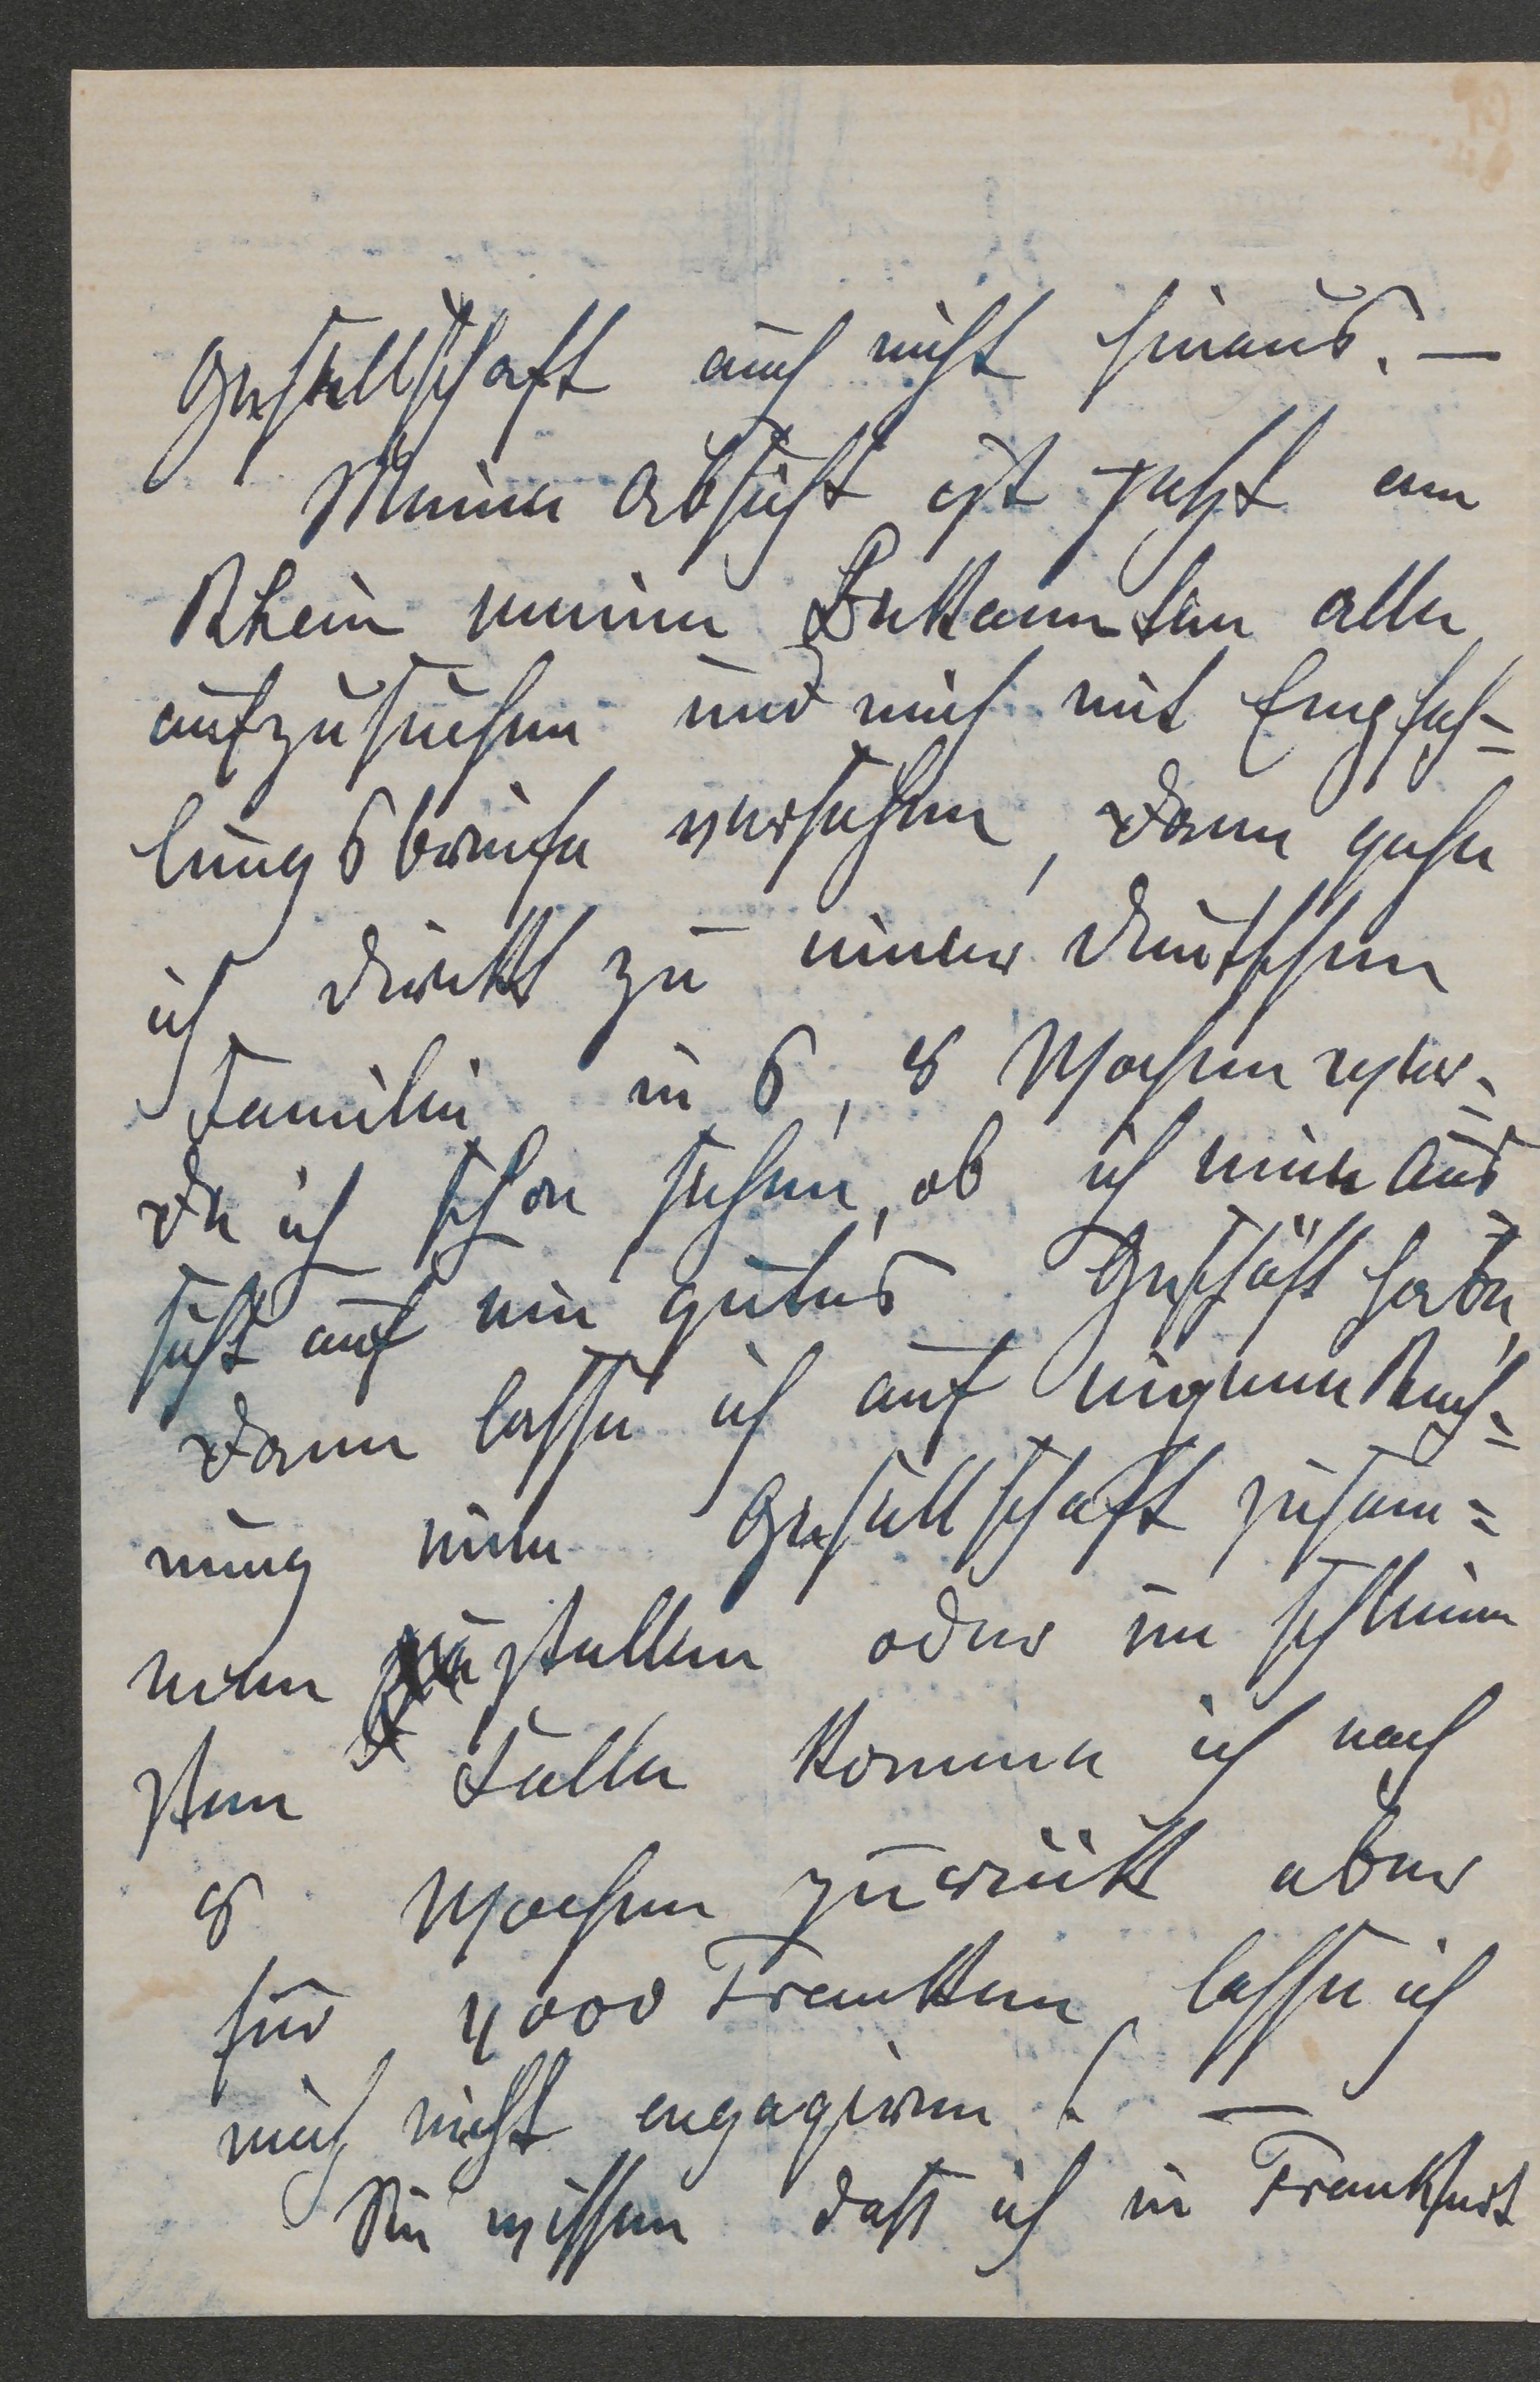 Gesellschaft auch nicht hinaus. —
Meine Absicht ist jetzt am
Rhein meine Bekannten alle
aufzusuchen und mich mit Empfeh=
lungsbriefe versehen, dann gehe
ich direkt zu einer deutschen
Familie in 6, 8 Wochen wer=
de ich schon sehen, ob ich eine Aus=
sicht auf ein gutes Geschäft habe,
dann lasse ich auf eigenen Rech=
nung eine Gesellschaft zusam=
men stellen oder im schlimm
sten Falle komme ich nach
8 Wochen zurück aber
für 4000 Franken lasse ich
mich nicht engagiren! —
Sie wissen daß ich in Frankfurt